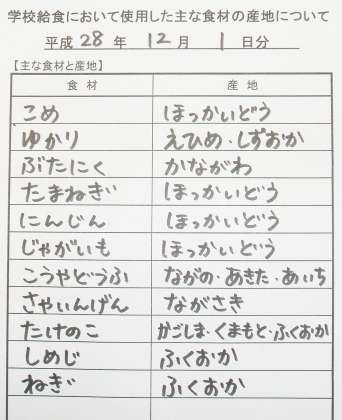 学校給食において使用した主な食材の産地について
平成 28 年 12 月 1 日分
【主な食材と産地】
食材 産地
こめ ほっかいどう
ゆかり えひめ・しずおか
ぶたにく かながわ
たまねぎ ほっかいどう
にんじん ほっかいどう
じゃがいも ほっかいどう
こうやどうふ ながの・あきた・あいち
さやいんげん ながさき
たけのこ かごしま・くまもと・ふくおか
しめじ ふくおか
ねぎ ふくおか